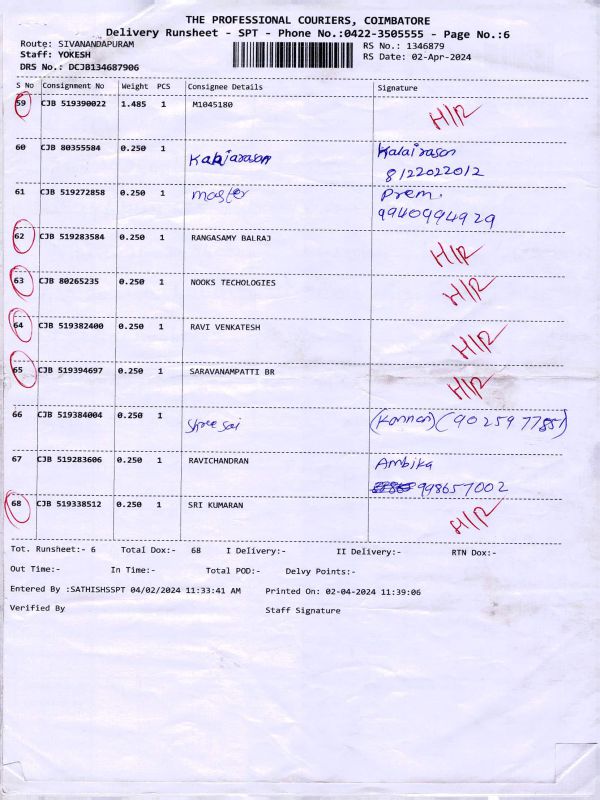 THE PROFESSIONAL COURIERS, COIMBATORE
Delivery Runsheet - SPT - Phone No.:0422-3505555 - Page No.:6
Route: SIVANANDAPURAM RS No.: 1346879
Staff: YOKESH RS Date: 02-Apr-2024
DRS No.: DCJB134687906
S No Consignment No Weight PCS Consignee Details Signature
59 CJB 519390022 1.485 1 M1045180 H/R
60 CJB 80355584 0.250 1 Kalaiarasan Kalairason
8122022012
61 CJB 519272858 0.250 1 master Prem.
9940994929
62 CJB 519283584 0.250 1 RANGASAMY BALRAJ H/R
63 CJB 80265235 0.250 1 NOOKS TECHOLOGIES H/R
64 CJB 519382400 0.250 1 RAVI VENKATESH H/R
65 CJB 519394697 0.250 1 SARAVANAMPATTI BR H/R
66 CJB 519384004 0.250 1 Shree sai (Kannan) (90259 77851)
67 CJB 519283606 0.250 1 RAVICHANDRAN Ambika
998657002
68 CJB 519338512 0.250 1 SRI KUMARAN H/R
Tot. Runsheet:- 6 Total Dox:- 68 I Delivery:- II Delivery:- RTN Dox:-
Out Time:- In Time:- Total POD:- Delvy Points:-
Entered By :SATHISHSSPT 04/02/2024 11:33:41 AM Printed On: 02-04-2024 11:39:06
Verified By Staff Signature